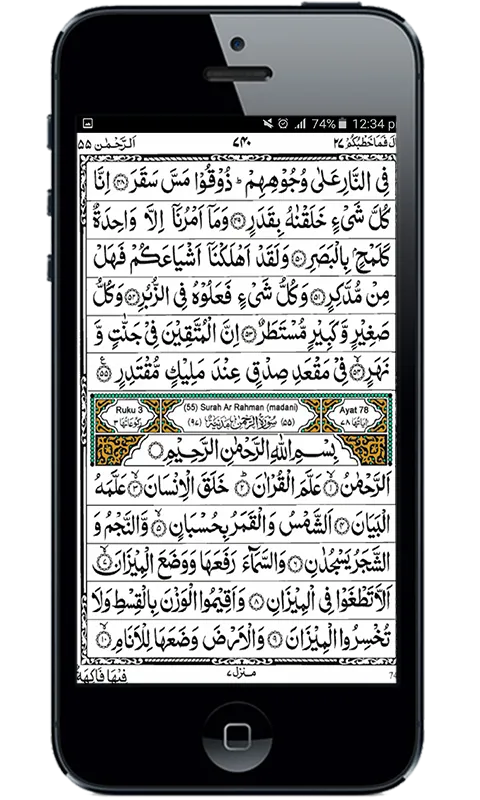 74% 12:34 p
اَلرَّحْمٰن ۵۵ ۷۴۰ قَالَ فَمَا خَطْبُكُمْ ۲۷
فِي النَّارِ عَلٰى وُجُوْهِهِمْ ؕ ذُوْقُوْا مَسَّ سَقَرَ ﴿۴۸﴾ اِنَّا
كُلَّ شَيْءٍ خَلَقْنٰهُ بِقَدَرٍ ﴿۴۹﴾ وَمَاۤ اَمْرُنَاۤ اِلَّا وَاحِدَةٌ
كَلَمْحٍۭ بِالْبَصَرِ ﴿۵۰﴾ وَلَقَدْ اَهْلَكْنَاۤ اَشْيَاعَكُمْ فَهَلْ
مِنْ مُّدَّكِرٍ ﴿۵۱﴾ وَكُلُّ شَيْءٍ فَعَلُوْهُ فِي الزُّبُرِ ﴿۵۲﴾ وَكُلُّ
صَغِيْرٍ وَّكَبِيْرٍ مُّسْتَطَرٌ ﴿۵۳﴾ اِنَّ الْمُتَّقِيْنَ فِيْ جَنّٰتٍ وَّ
نَهَرٍ ﴿۵۴﴾ فِيْ مَقْعَدِ صِدْقٍ عِنْدَ مَلِيْكٍ مُّقْتَدِرٍ ﴿۵۵﴾
Ruku 3 (55) Surah Ar Rahman (madani) Ayat 78
رُكُوْعَاتُهَا ۳ (۹۷) سُوْرَةُ الرَّحْمٰنِ مَدَنِيَّةٌ (۵۵) اٰيَاتُهَا ۷۸
بِسْمِ اللّٰهِ الرَّحْمٰنِ الرَّحِيْمِ
اَلرَّحْمٰنُ ﴿۱﴾ عَلَّمَ الْقُرْاٰنَ ﴿۲﴾ خَلَقَ الْاِنْسَانَ ﴿۳﴾ عَلَّمَهُ
الْبَيَانَ ﴿۴﴾ اَلشَّمْسُ وَالْقَمَرُ بِحُسْبَانٍ ﴿۵﴾ وَّالنَّجْمُ وَ
الشَّجَرُ يَسْجُدٰنِ ﴿۶﴾ وَالسَّمَآءَ رَفَعَهَا وَوَضَعَ الْمِيْزَانَ ﴿۷﴾
اَلَّا تَطْغَوْا فِي الْمِيْزَانِ ﴿۸﴾ وَاَقِيْمُوا الْوَزْنَ بِالْقِسْطِ وَلَا
تُخْسِرُوا الْمِيْزَانَ ﴿۹﴾ وَالْاَرْضَ وَضَعَهَا لِلْاَنَامِ ﴿۱۰﴾
فِيْهَا فَاكِهَةٌ منزل ۷